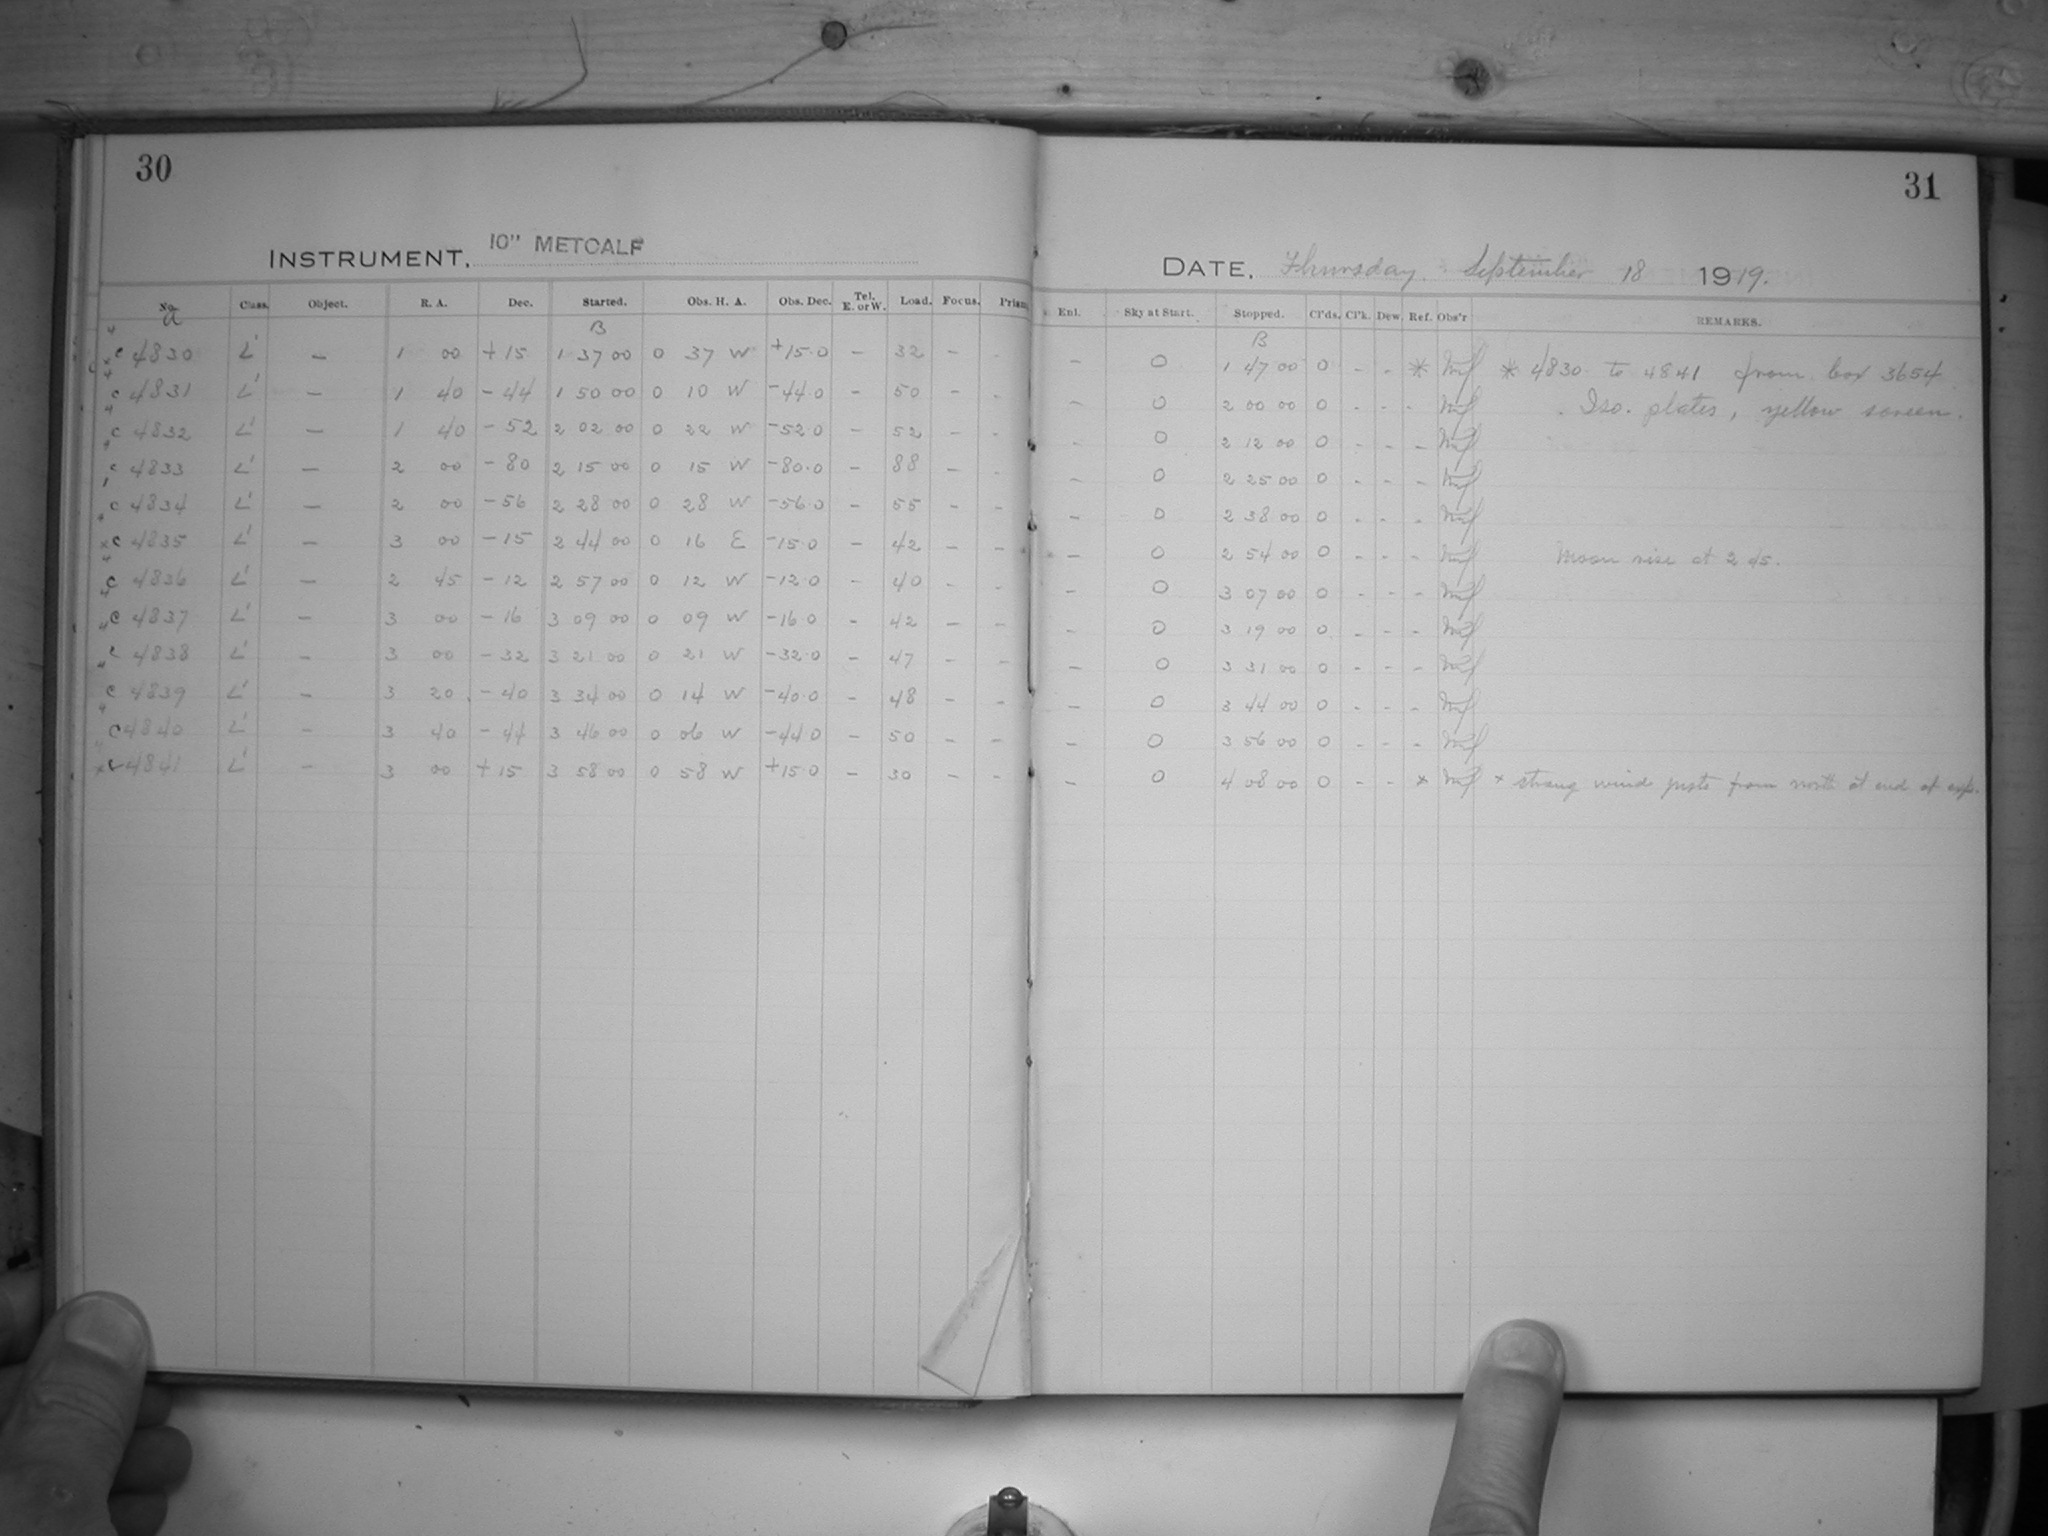 30
INSTRUMENT. 10" METCALF
No. Class. Object. R. A. Dec. Started. Obs. H. A. Obs. Dec. Tel. E. or W. Load. Focus. Prism.
a B
c 4830 L' — 1 00 +15 1 37 00 0 37 W +15.0 — 32 — -
c 4831 L' — 1 40 -44 1 50 00 0 10 W -44.0 — 50 — -
c 4832 L' — 1 40 -52 2 02 00 0 22 W -52.0 — 52 — -
c 4833 L' — 2 00 -80 2 15 00 0 15 W -80.0 — 88 — -
c 4834 L' — 2 00 -56 2 28 00 0 28 W -56.0 — 55 — -
c 4835 L' — 3 00 -15 2 44 00 0 16 E -15.0 — 42 — -
c 4836 L' — 2 45 -12 2 57 00 0 12 W -12.0 — 40 — -
c 4837 L' — 3 00 -16 3 09 00 0 09 W -16.0 — 42 — -
c 4838 L' — 3 00 -32 3 21 00 0 21 W -32.0 — 47 — -
c 4839 L' — 3 20 -40 3 34 00 0 14 W -40.0 — 48 — -
c 4840 L' — 3 40 -44 3 46 00 0 06 W -44.0 — 50 — -
4841 L' — 3 00 +15 3 58 00 0 58 W +15.0 — 30 — -
31
DATE. Thursday September 18 1919.
Enl. Sky at Start. Stopped. Cl'ds. Cl'k. Dew. Ref. Obs'r REMARKS.
B
— 0 1 47 00 0 - - * * 4830 to 4841 from box 3654
— 0 2 00 00 0 - - - Iso. plates, yellow screen.
- 0 2 12 00 0 - - -
- 0 2 25 00 0 - - -
- 0 2 38 00 0 - - -
— 0 2 54 00 0 - - - Moon rise at 2 45.
- 0 3 07 00 0 - - -
- 0 3 19 00 0 - - -
— 0 3 31 00 0 - - -
— 0 3 44 00 0 - - -
— 0 3 56 00 0 - - -
— 0 4 08 00 0 - - x x strong wind gusts from north at end of exp.